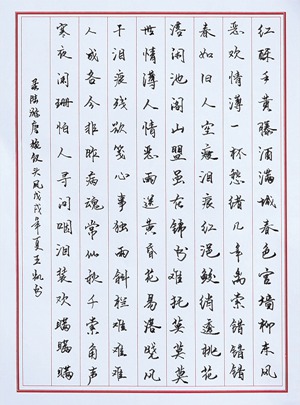 红酥手黄滕酒满城春色宫墙柳东风
恶欢情薄一杯愁绪几年离索错错错
春如旧人空瘦泪痕红浥鲛绡透桃花
落闲池阁山盟虽在锦书难托莫莫莫
世情薄人情恶雨送黄昏花易落晓风
干泪痕残欲笺心事独雨斜栏难难难
人成各今非昨病魂常似秋千索角声
寒夜阑珊怕人寻问咽泪装欢瞒瞒瞒
录陆游唐婉钗头凤戊戌年夏王凯书